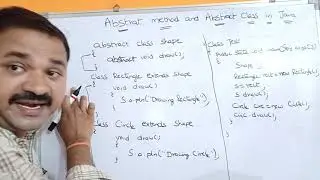 Abstract method and Abstract Class in Java
abstract class shape
{
abstract void draw();
}
class Rectangle extends Shape
{
void draw()
{
S.o.pln("Drawing Rectangle");
}
class Circle extends Shape
void draw()
{
S.o.pln("Drawing Circle");
class Test
{
public static void main(String args[])
{
Shape
Rectangle = new Rectangle();
s.draw();
= new Circle();
draw();
}